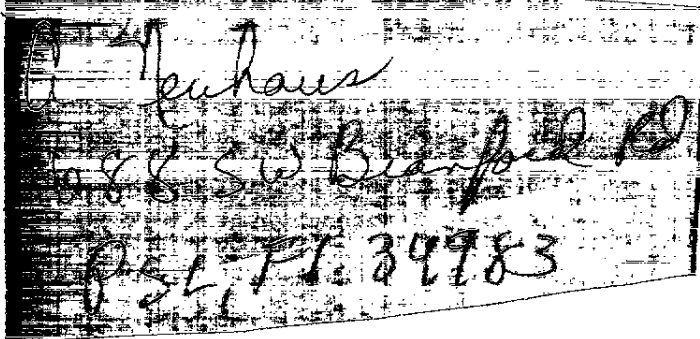 A Neuhaus
688 SW Bianford Rd
PSL, Fl. 34983